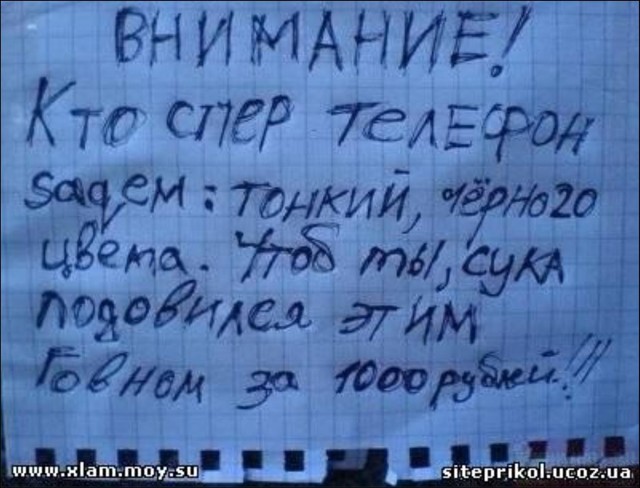 ВНИМАНИЕ!
Кто спер телефон
sagem: тонкий, чёрного
цвета. Чтоб ты, сука
подовился этим
говном за 1000 рублей!!!
www.xlam.moy.su
siteprikol.ucoz.ua